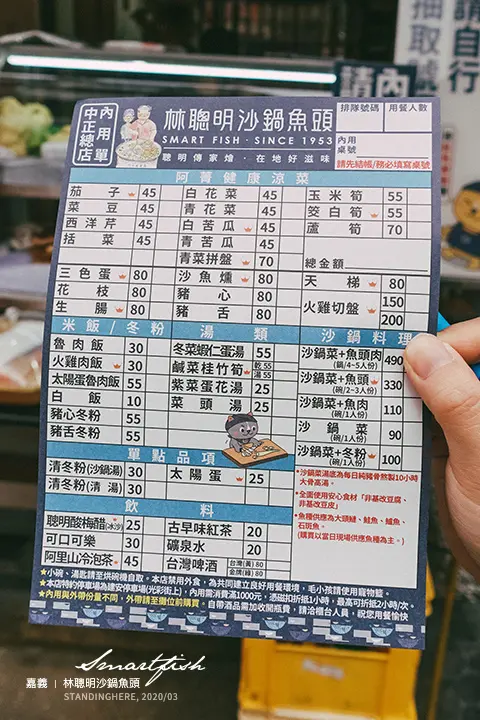 請自行
抽取號
內
請
中正總店
內用單
林聰明沙鍋魚頭
SMART FISH · SINCE 1953
聰明傳家燴．在地好滋味
排隊號碼 用餐人數
內用桌號
請先結帳/務必填寫桌號
阿菁健康涼菜
茄子 45 白花菜 45 玉米筍 55
菜豆 45 青花菜 45 筊白筍 55
西洋芹 45 白苦瓜 45 蘆筍 70
括菜 45 青苦瓜 45
青菜拼盤 70 總金額
三色蛋 80 沙魚燻 80 天梯 80
花枝 80 豬心 80 火雞切盤 150
生腸 80 豬舌 80 200
米飯/冬粉 湯類 沙鍋料理
魯肉飯 30 冬菜蝦仁蛋湯 55 沙鍋菜+魚頭肉 490
(鍋/4~5人份)
火雞肉飯 30 鹹菜桂竹筍 乾 55 湯 55 沙鍋菜+魚頭 330
(碗/2~3人份)
太陽蛋魯肉飯 55 紫菜蛋花湯 25 沙鍋菜+魚肉 110
(碗/1人份)
白飯 10 菜頭湯 25 沙鍋菜 90
(碗/1人份)
豬心冬粉 55 沙鍋菜+冬粉 100
(碗/1人份)
豬舌冬粉 55
單點品項
清冬粉(沙鍋湯) 30 太陽蛋 25
清冬粉(清湯) 30
飲料
聰明酸梅醋(冰沙) 25 古早味紅茶 20
可口可樂 30 礦泉水 20
阿里山冷泡茶 45 台灣啤酒 台灣(黃) 80 金牌(綠) 80
*沙鍋菜湯底為每日純豬骨熬製10小時大骨高湯。
*全面使用安心食材「非基改豆腐、非基改豆皮」
*魚種供應為大頭鰱、鮭魚、鱸魚、石斑魚。
(購買以當日現場供應魚種為主。)
★小碗、湯匙請至烘碗機自取。本店禁用外食，為共同建立良好用餐環境，毛小孩請使用寵物籃。
★本店特約停車場為建安停車場(光彩街上)，內用需消費滿1000元，憑磁扣折抵1小時，最高可折抵2小時/次。
★內用與外帶份量不同，外帶請至攤位前購買。自帶酒品需加收開瓶費，請洽櫃台人員，祝您用餐愉快
Smartfish
嘉義 | 林聰明沙鍋魚頭
STANDINGHERE, 2020/03